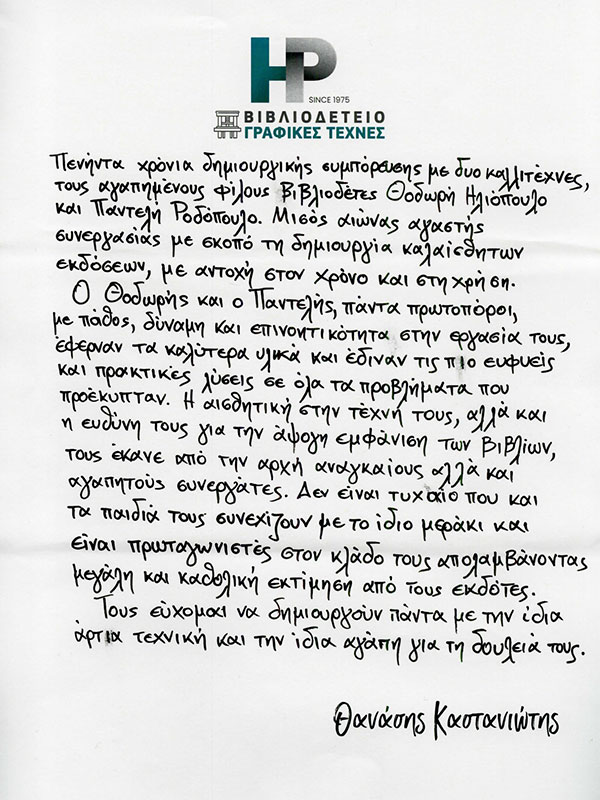 HP
SINCE 1975
ΒΙΒΛΙΟΔΕΤΕΙΟ
ΓΡΑΦΙΚΕΣ ΤΕΧΝΕΣ
Πενήντα χρόνια δημιουργικής συμπόρευσης με δυο καλλιτέχνες,
τους αγαπημένους φίλους βιβλιοδέτες Θοδωρή Ηλιόπουλο
και Παντελή Ροδόπουλο. Μισός αιώνας αγαστής
συνεργασίας με σκοπό τη δημιουργία καλαίσθητων
εκδόσεων, με αντοχή στον χρόνο και στη χρήση.
Ο Θοδωρής και ο Παντελής, πάντα πρωτοπόροι,
με πάθος, δύναμη και επινοητικότητα στην εργασία τους,
έφερναν τα καλύτερα υλικά και έδιναν τις πιο ευφυείς
και πρακτικές λύσεις σε όλα τα προβλήματα που
προέκυπταν. Η αισθητική στην τέχνή τους, αλλά και
η ευθύνη τους για την άψογη εμφάνιση των βιβλίων,
τους έκανε από την αρχή αναγκαίους αλλά και
αγαπητούς συνεργάτες. Δεν είναι τυχαίο που και
τα παιδιά τους συνεχίζουν με το ίδιο μεράκι και
είναι πρωταγωνιστές στον κλάδο τους απολαμβάνοντας
μεγάλη και καθολική εκτίμηση από τους εκδότες.
Τους εύχομαι να δημιουργούν πάντα με την ίδια
άρτια τεχνική και την ίδια αγάπη για τη δουλειά τους.
Θανάσης Καστανιώτης